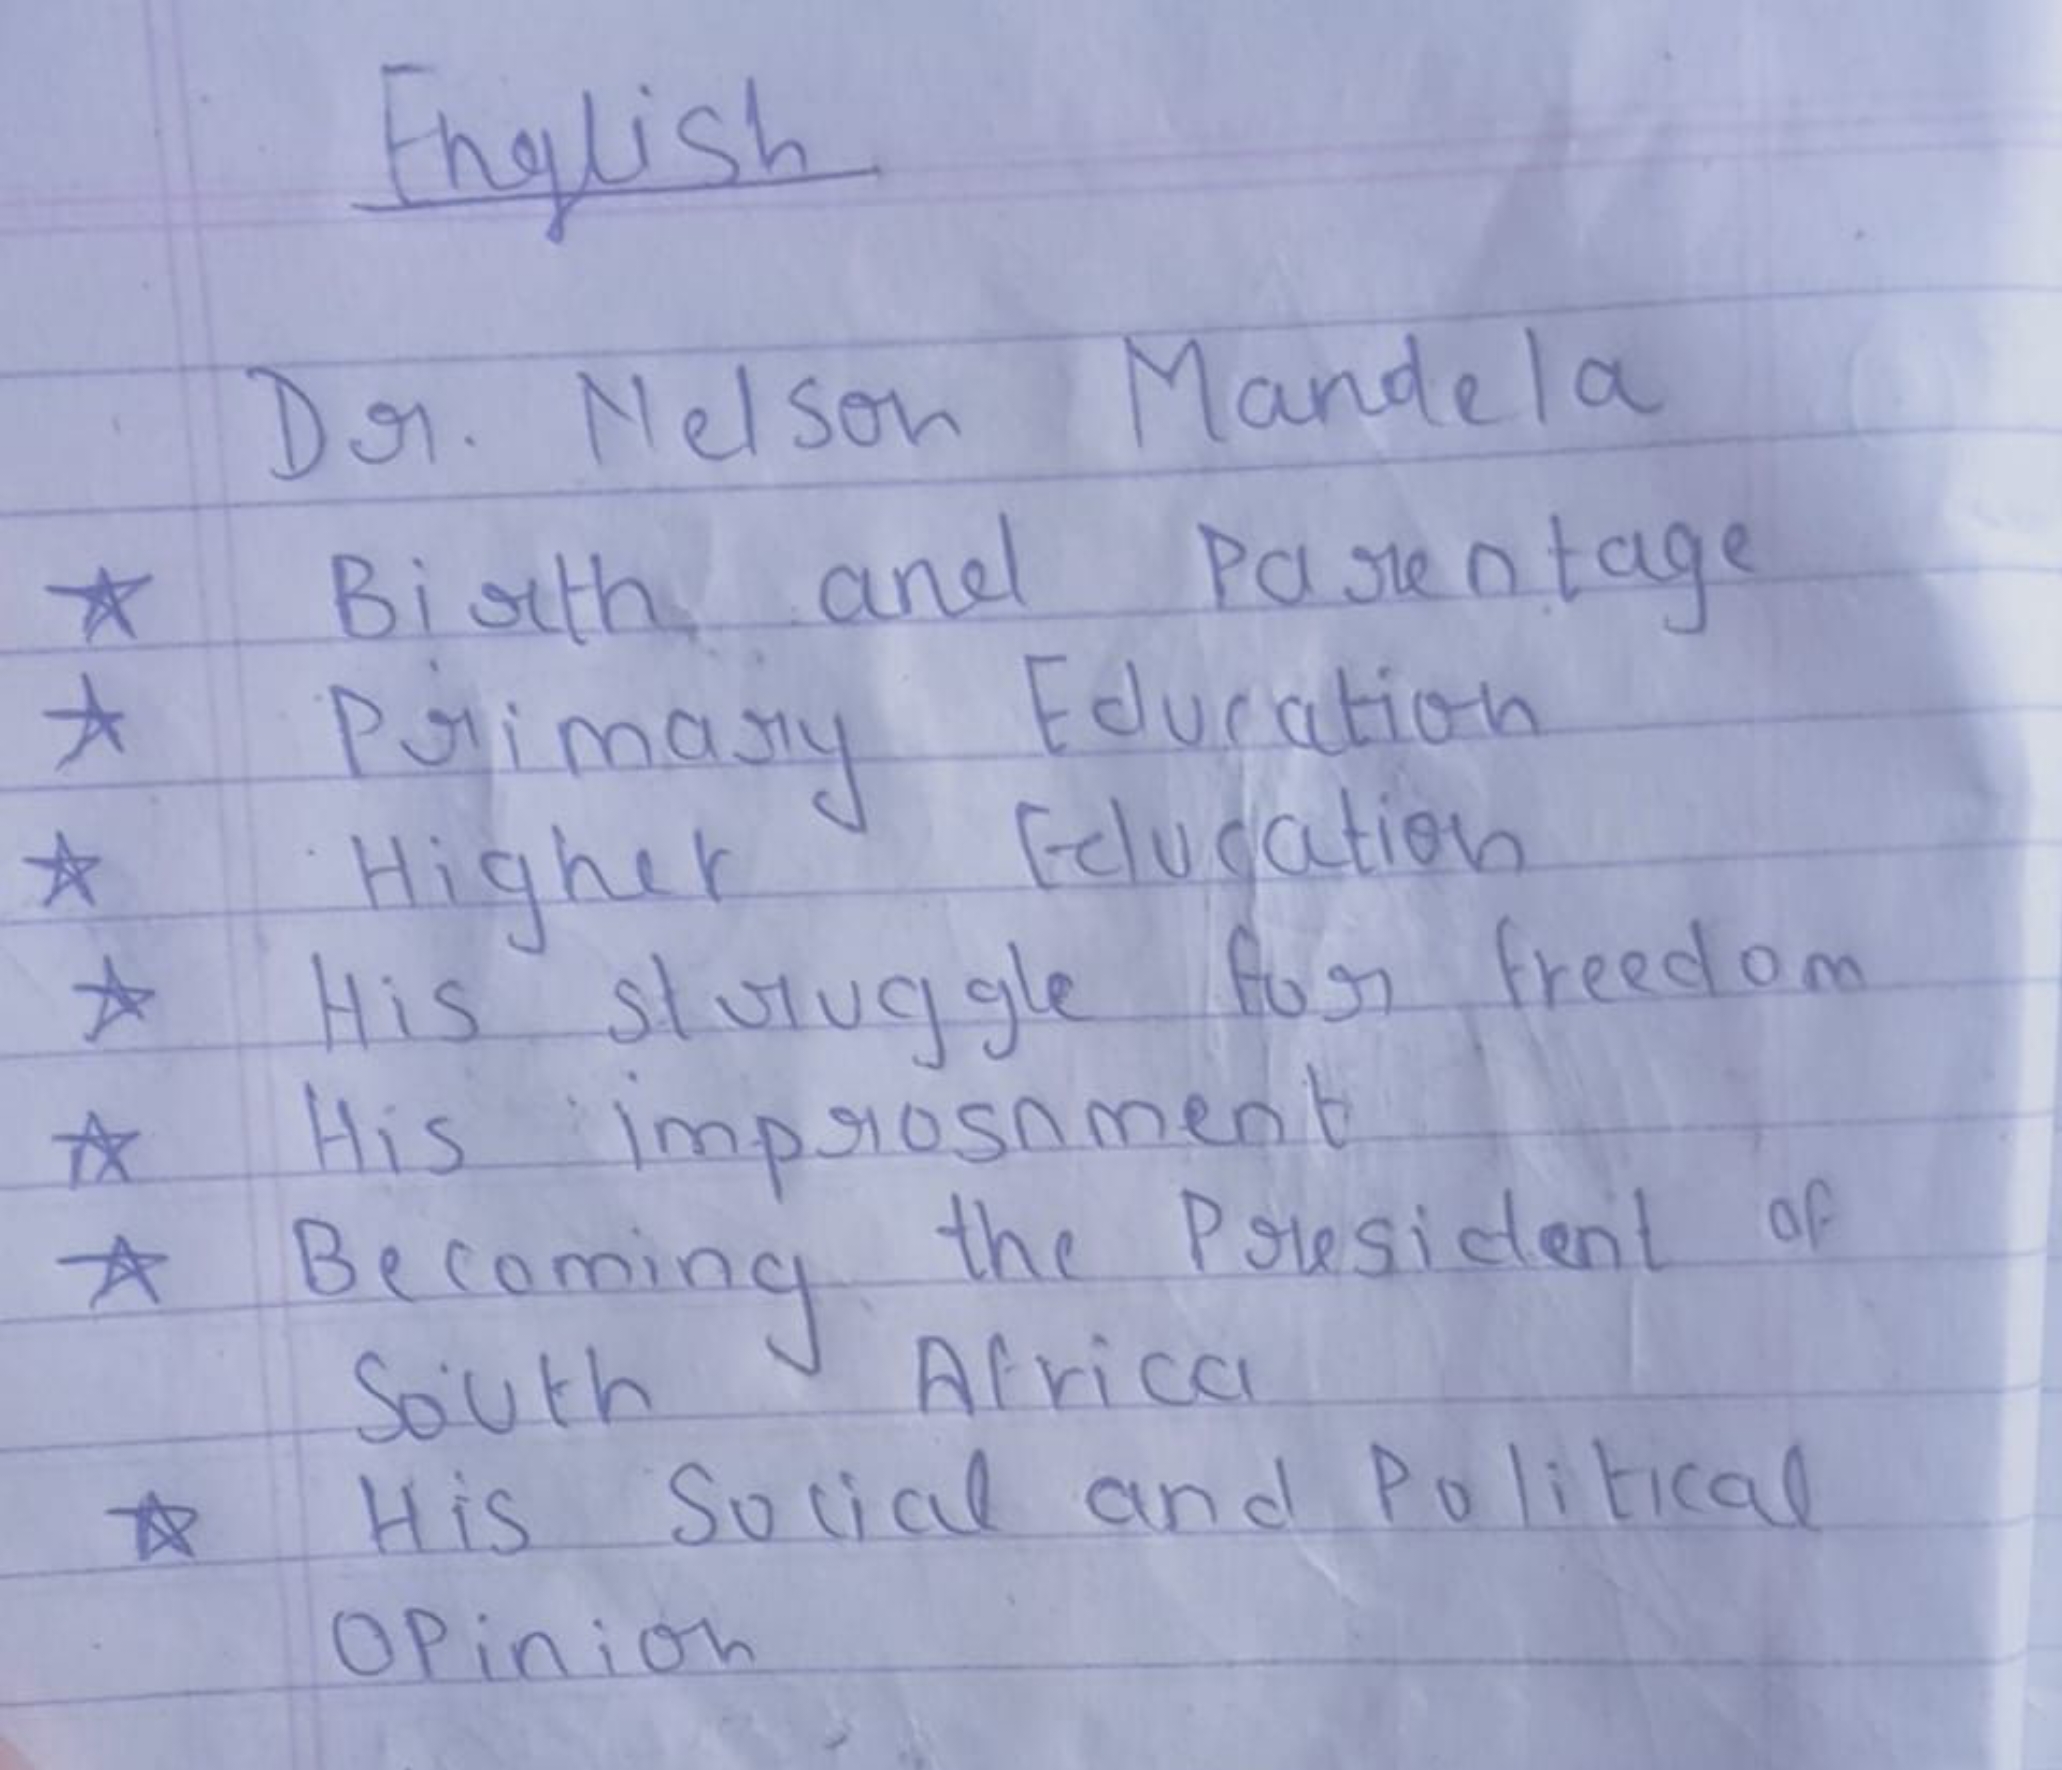 English
Dr. Nelson Mandela
☆ Birth and Parentage
☆ Primary Education
☆ Higher Education
☆ His struggle for freedom
☆ His improsnment
☆ Becoming the President of
South Africa
☆ His Social and Political
Opinion